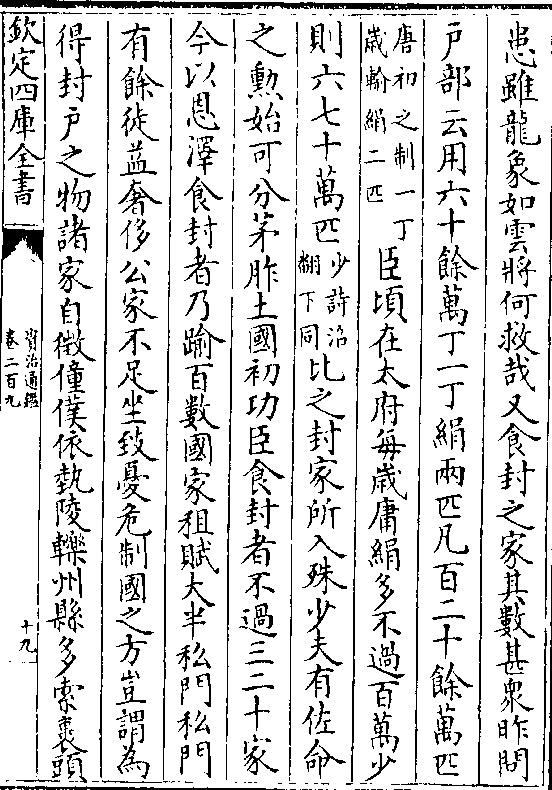 患雖龍象如雲將何救哉又食封之家其數甚衆昨問
戸部云用六十餘萬丁一丁絹兩匹凡百二十餘萬匹
唐初之制一丁
歲輸絹二匹
臣頃在太府每歲庸絹多不過百萬少
則六七十萬匹
少詩沼
翻下同
比之封家所入殊少夫有佐命
之勲始可分茅胙土國初功臣食封者不過三二十家
今以恩澤食封者乃踰百數國家租賦大半私門私門
有餘徒益奢侈公家不足坐致憂危制國之方豈謂為
得封戸之物諸家自徴僮僕依埶陵轢州縣多索裹頭
欽定四庫全書
資治通鑑
卷二百九
十九